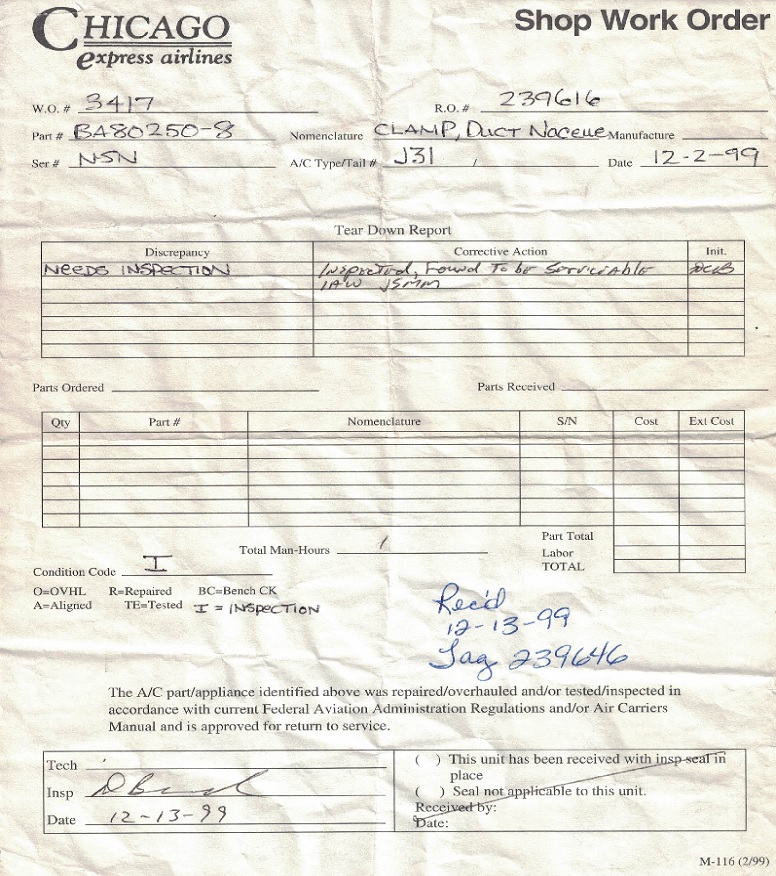 CHICAGO
express airlines
Shop Work Order
W.O. # 3417 R.O. # 239616
Part # BA80250-8 Nomenclature CLAMP, Duct Nacelle Manufacture
Ser # NSN A/C Type/Tail # J31 / Date 12-2-99
Tear Down Report
Discrepancy Corrective Action Init.
NEEDS INSPECTION Inspected, Found To be Serviceable
IAW JSMM
Parts Ordered Parts Received
Qty Part # Nomenclature S/N Cost Ext Cost
Part Total
Total Man-Hours 1
Labor
Condition Code I TOTAL
O=OVHL R=Repaired BC=Bench CK
A=Aligned TE=Tested I = INSPECTION
Rec'd
12-13-99
Tag 239646
The A/C part/appliance identified above was repaired/overhauled and/or tested/inspected in
accordance with current Federal Aviation Administration Regulations and/or Air Carriers
Manual and is approved for return to service.
Tech
Insp
Date 12-13-99
( ) This unit has been received with insp seal in
place
( ) Seal not applicable to this unit.
Received by:
Date:
M-116 (2/99)